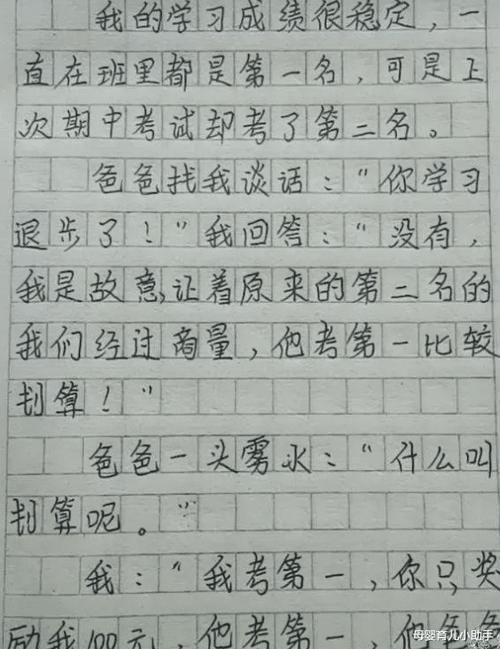 我的学习成绩很稳定，一
直在班里都是第一名，可是上
次期中考试却考了第二名。
爸爸找我谈话：“你学习
退步了！”我回答：“没有，
我是故意，让着原来的第二名的
我们经过商量，他考第一比较
划算！”
爸爸一头雾水：“什么叫
划算呢。”
我：“我考第一，你只奖
励我100元，他考第一，他爸爸
母婴育儿小助手